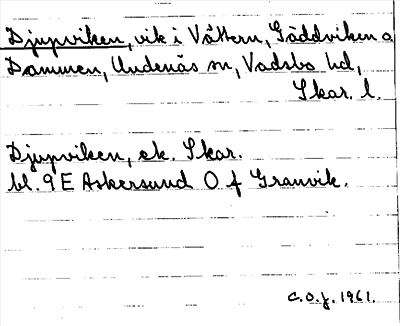 Djupviken, vik i Vättern, Gäddviken o
Dammen, Undenäs sn, Vadsbo hd,
Skar. l.
Djupviken, ek. Skar.
bl. 9 E Askersund O f Granvik.
C.O.J. 1961.